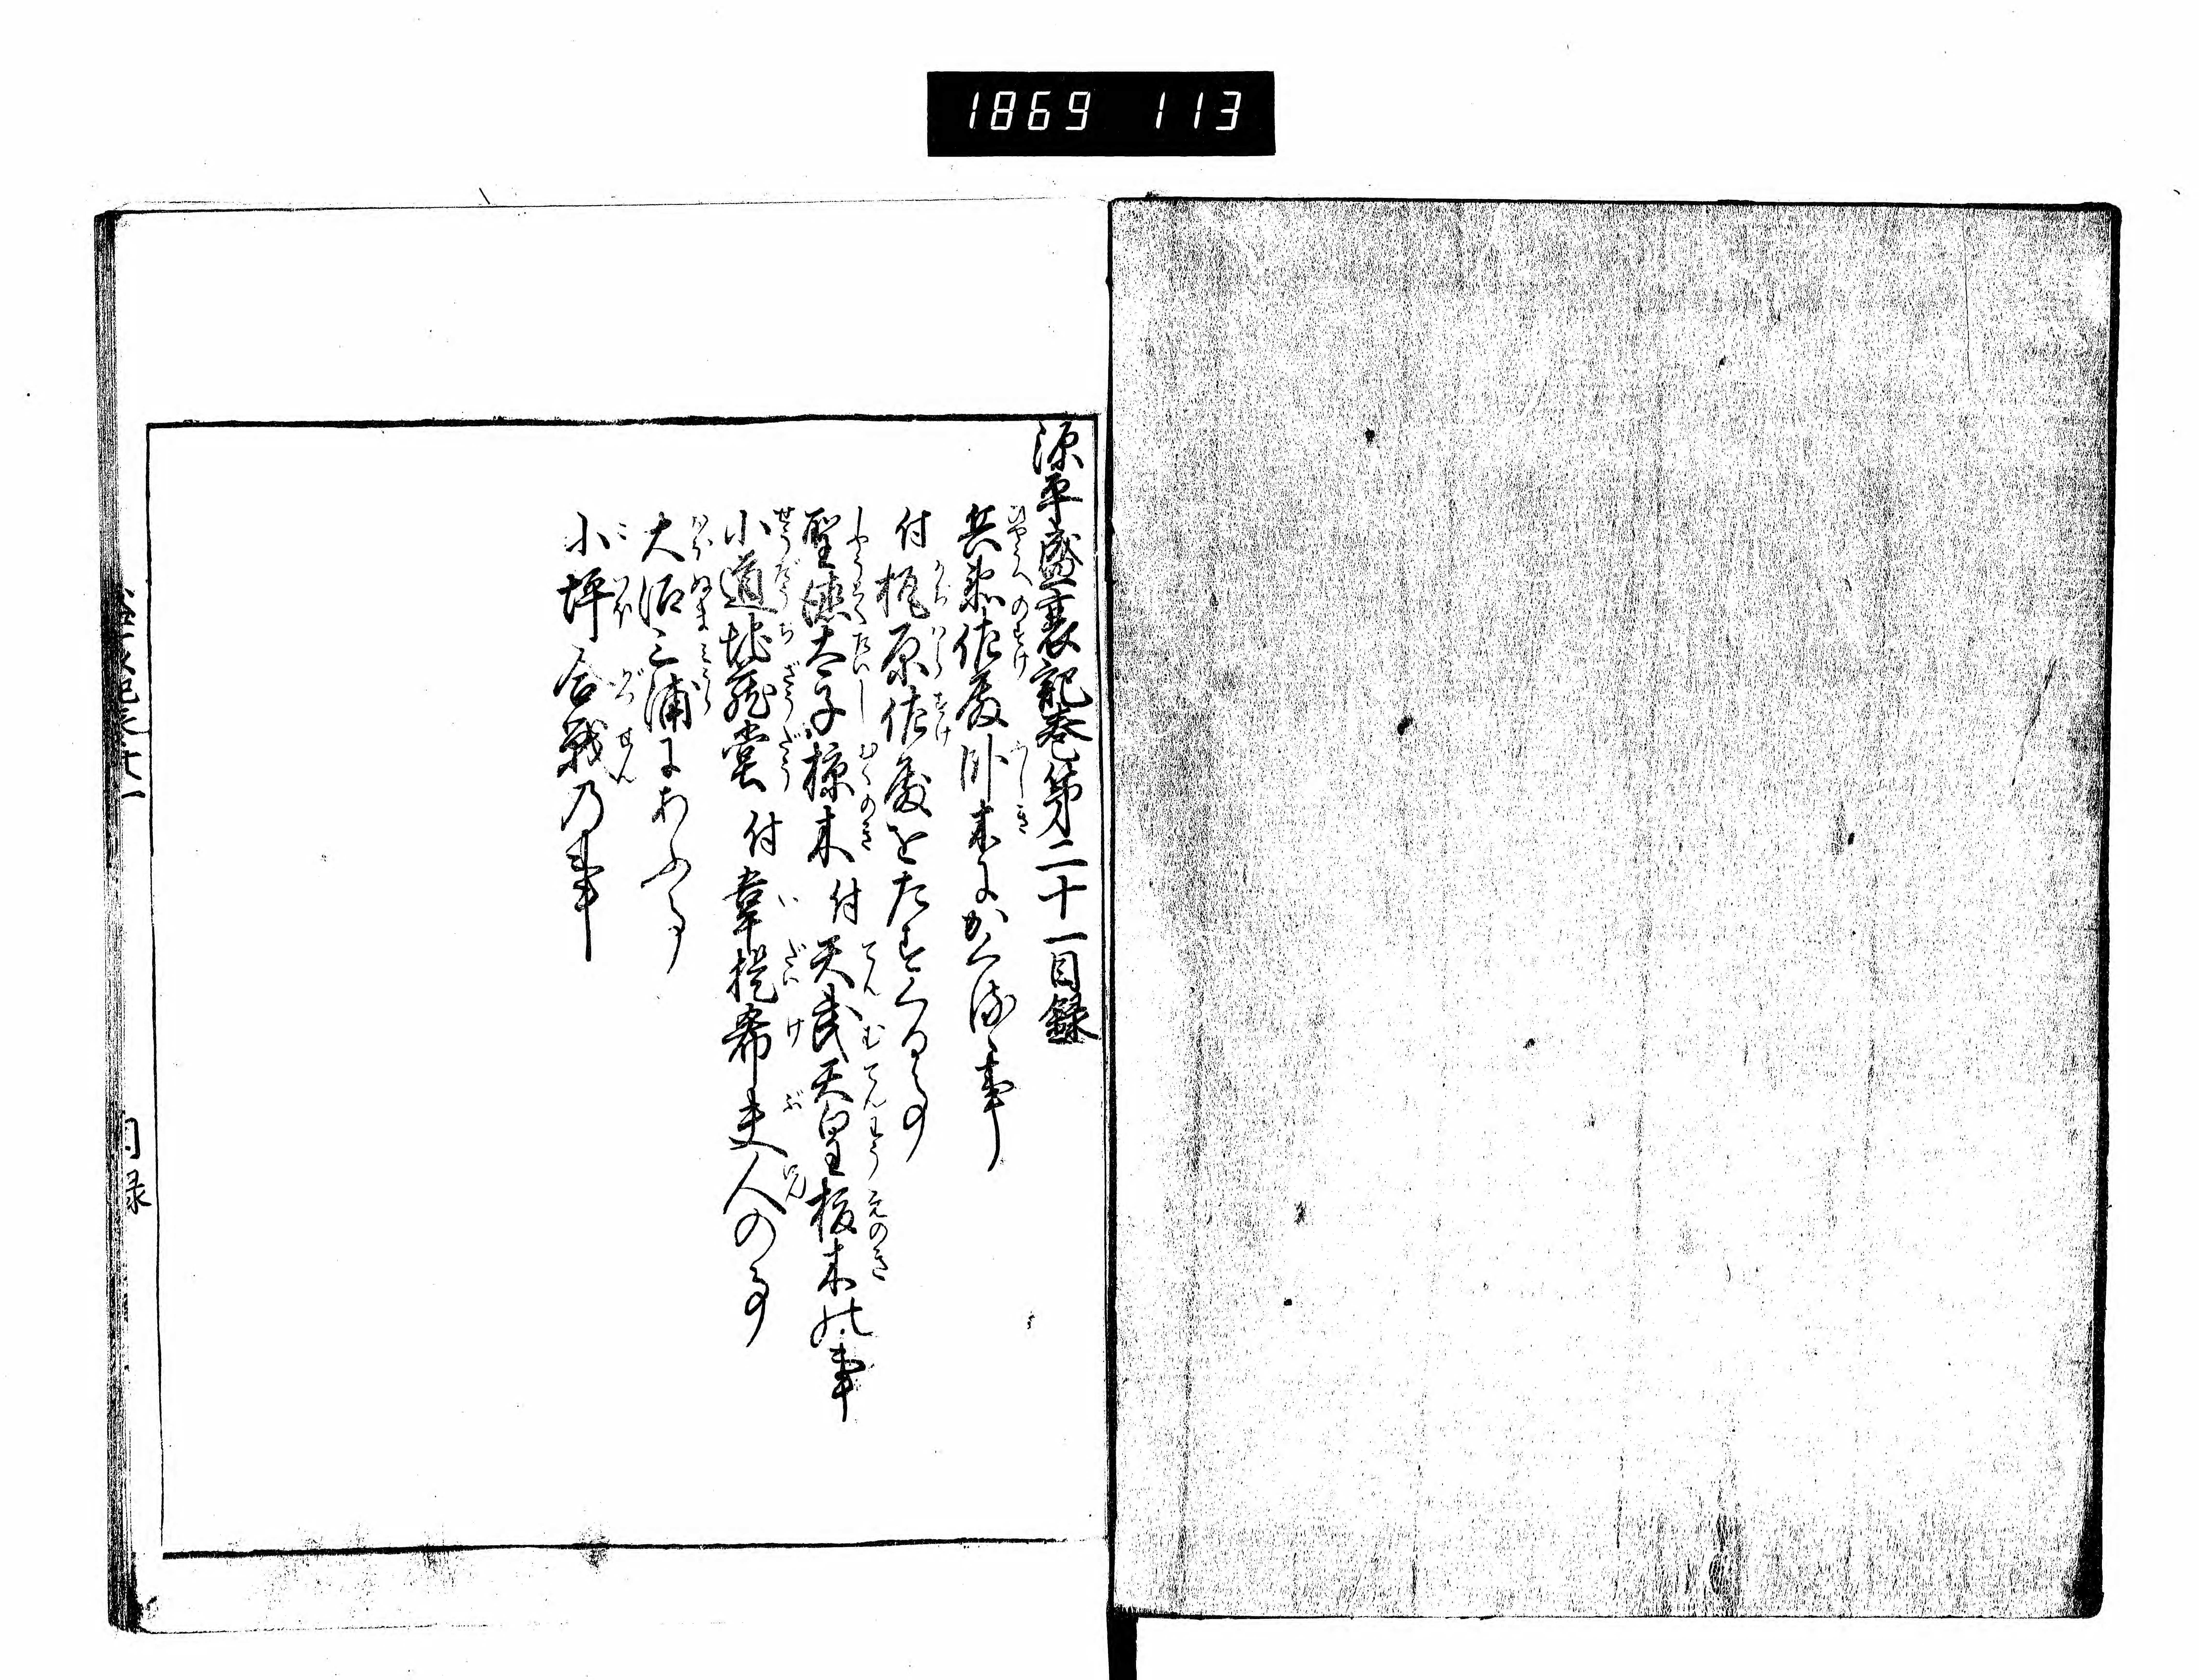 1869 113
源平盛衰記巻第二十一目録
兵衛佐殿臥木にかくるゝ事
付梶原佐殿をたすくる事
聖徳太子椋木付天武天皇榎木の事
小道地蔵堂付韋提希夫人の事
大沼三浦にあふ事
小坪合戦乃事
目録